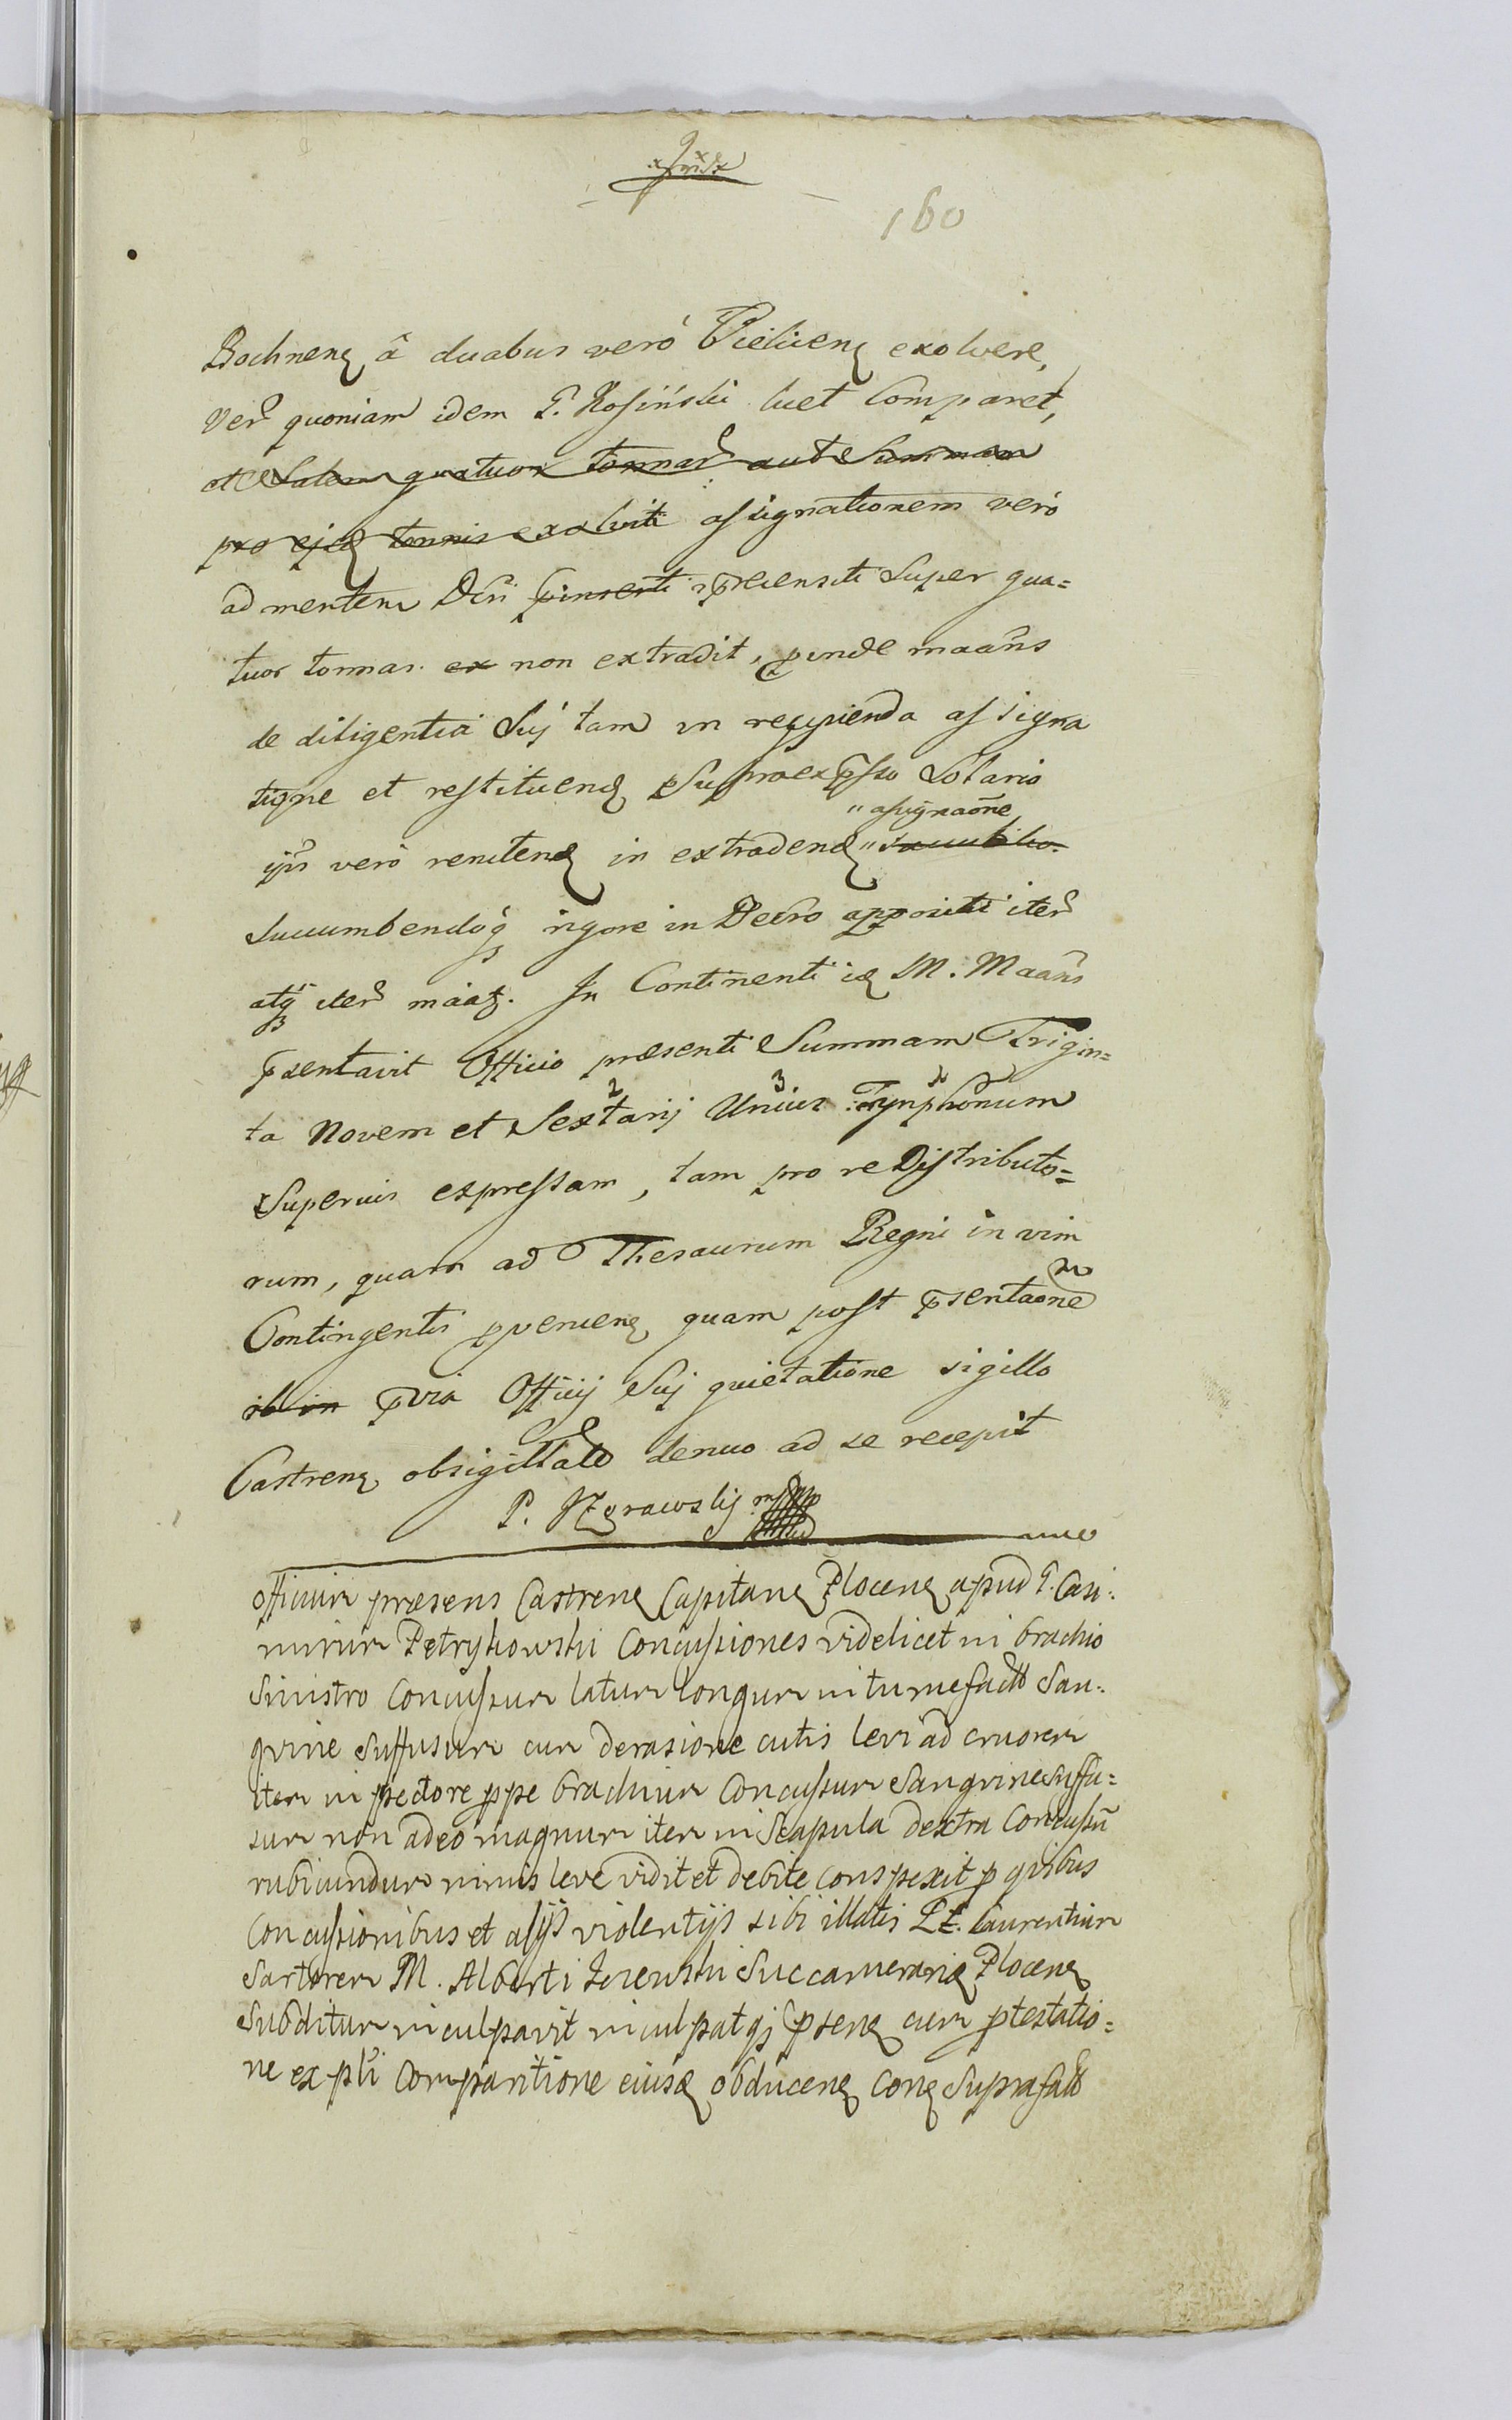 160
Bochnenꝗ â duabus verò Vielicenꝗ exolvere,
Ver quoniam idem G. Kosiński licet Comparet,
et Salem quatuor tonnar aut Summam
pro ejsdꝗ tonnis exolvit assignationem verò
ad mentem Dcri inserti recensiti super qua=
tuor tonnar. ex non extradit, proinde maāns
de diligentia Suj tam in recipienda assigna
tione et restituenꝗ Supraexp̄sso Solario
ipsi verò renitenꝗ in extradenꝗ " sauubilio.
" assignaōne
succumbendoq̨ rigore in Decro appositi iter
atq̨ iter māāt. In Continenti idꝗ M. Maāns
p̄sentavit Officio præsenti Summam Trigin=
ta Novem et Sextarij Unius Tynphonum
2 3
Superius expressam, tam pro re Distributo=
rum, quam ad Thesaurum Regni in vim
Contingentis pvenienꝗ quam post p̄sentaōnē
ib in p̄via Officij Suj quietatione sigillo
Castrenꝗ obsigillata denuo ad se recepit
P. Zgrawskij mp
Officium præsens Castrenꝗ Capitanꝗ Plocenꝗ apud G. Casi:
mirum Petrykowski Concussiones videlicet in brachio
Sinistro Concussum latum longum intumefactū San:
gvine Suffusum cum derasione cutis levi ad cruorem
item in pectore ppe brachium Concussum Sangvine Suffu=
sum non adeo magnum item in Scapula dextra Concussū
rubicundum nimis leve vidit et debite conspexit p qvibus
Concussionibus et alijs violentijs sibi illatis Lt. Laurentium
Sartorem M. Alberti Jezewski Succamerarij Plocenꝗ
Subditum inculpavit inculpatqj p̄senꝗ cum ptestatio=
ne ex psti Comparitione eiusdꝗ obducenꝗ conꝗ Suprafatū